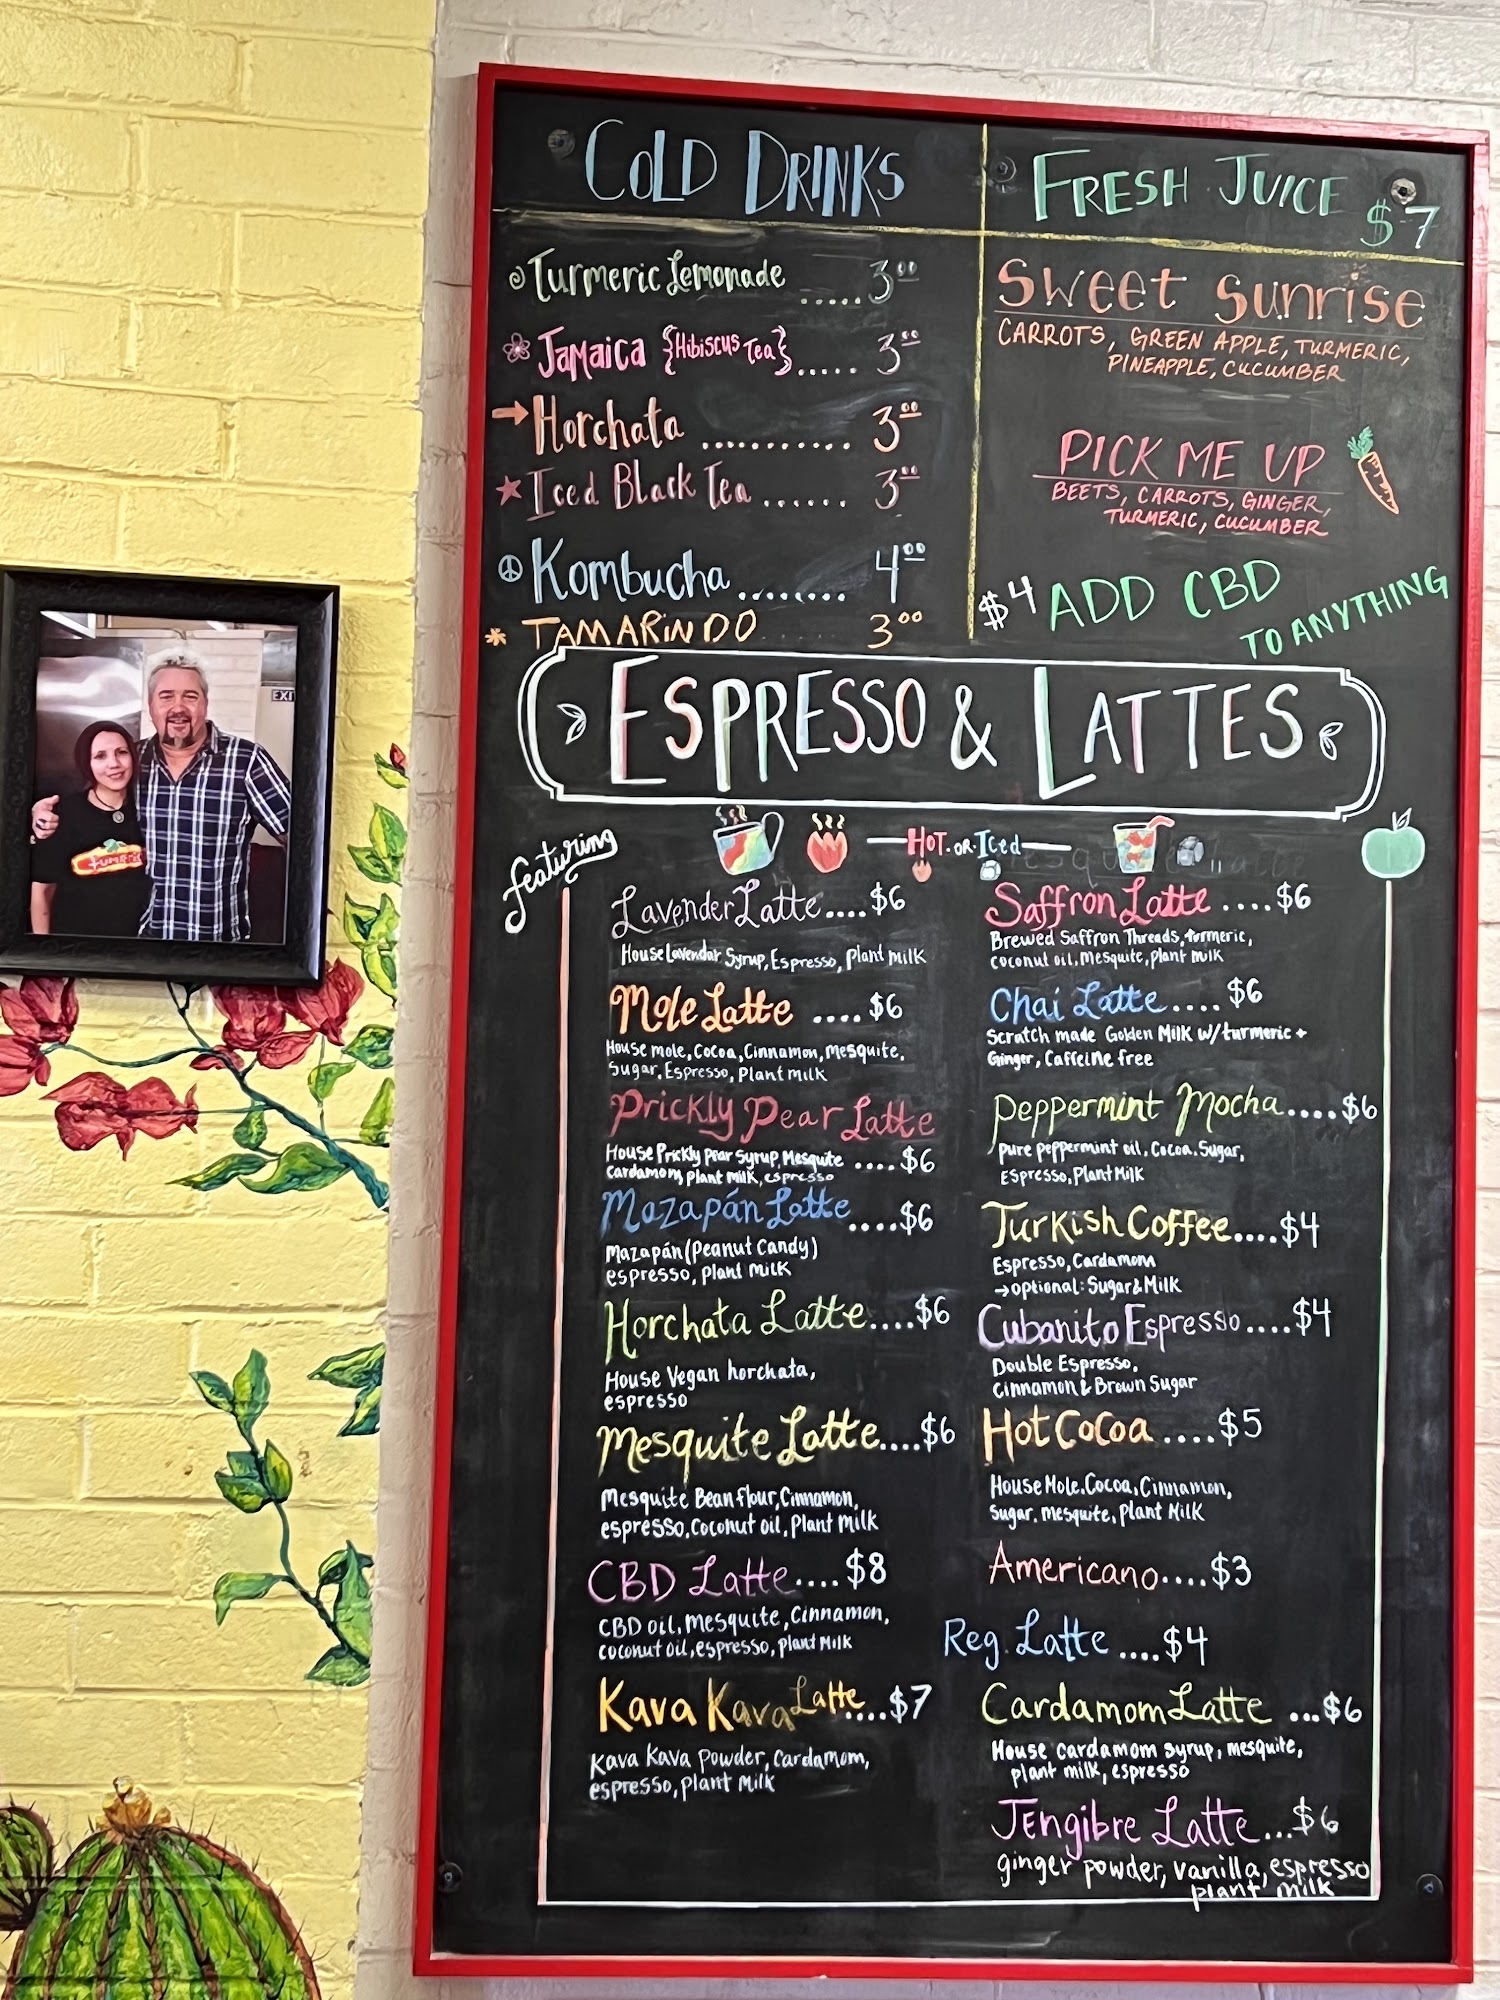 COLD DRINKS
Turmeric Lemonade ..... 3.00
Jamaica {Hibiscus Tea}..... 3.00
Horchata ........... 3.00
Iced Black Tea ...... 3.00
Kombucha ........ 4.00
TAMARINDO ...... 3.00
FRESH JUICE
$7
Sweet Sunrise
CARROTS, GREEN APPLE, TURMERIC,
PINEAPPLE, CUCUMBER
PICK ME UP
BEETS, CARROTS, GINGER,
TURMERIC, CUCUMBER
$4 ADD CBD
TO ANYTHING
ESPRESSO & LATTES
featuring
HOT.OR.Iced
Lavender Latte....$6
House Lavendar Syrup, Espresso, Plant Milk
Mole Latte ....$6
House mole, Cocoa, Cinnamon, Mesquite,
Sugar, Espresso, Plant Milk
Prickly Pear Latte
House Prickly Pear Syrup, Mesquite ....$6
Cardamom, Plant Milk, espresso
Mazapán Latte....$6
Mazapán (Peanut Candy)
espresso, Plant Milk
Horchata Latte....$6
House Vegan horchata,
espresso
Mesquite Latte....$6
Mesquite Bean flour, Cinnamon,
espresso, Coconut oil, Plant Milk
CBD Latte....$8
CBD oil, Mesquite, Cinnamon,
coconut oil, espresso, plant Milk
Kava Kava Latte....$7
Kava Kava Powder, Cardamom,
espresso, plant Milk
Saffron Latte ....$6
Brewed Saffron Threads, turmeric,
coconut oil, Mesquite, plant milk
Chai Latte....$6
Scratch made Golden Milk w/turmeric +
Ginger, Caffeine free
Peppermint Mocha....$6
pure peppermint oil, Cocoa, Sugar,
Espresso, Plant Milk
Turkish Coffee....$4
Espresso, Cardamom
→optional: Sugar & Milk
Cubanito Espresso....$4
Double Espresso,
Cinnamon & Brown Sugar
Hot Cocoa....$5
House Mole, Cocoa, Cinnamon,
Sugar, mesquite, Plant Milk
Americano....$3
Reg. Latte ....$4
Cardamom Latte ...$6
House cardamom syrup, mesquite,
plant milk, espresso
Jengibre Latte...$6
ginger powder, vanilla, espresso
plant milk
EXI
turmeric